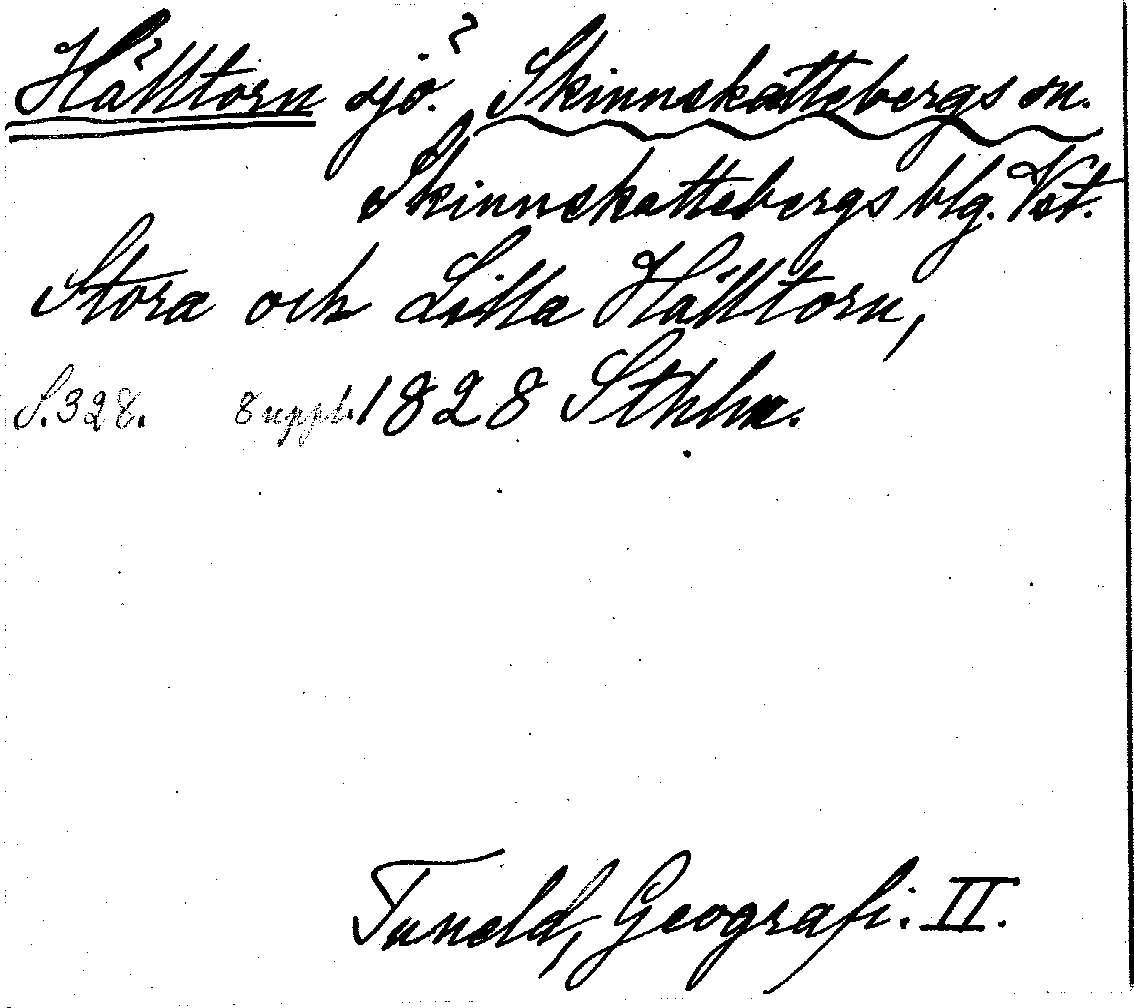 Hälltorn sjö.? Skinnskattebergs sn.
Skinnskattebergs blg. Vst.
Stora och Lilla Hälltorn,
S. 328. 8 uppl. 1828 Sthlm.
Tuneld, Geografi. II.